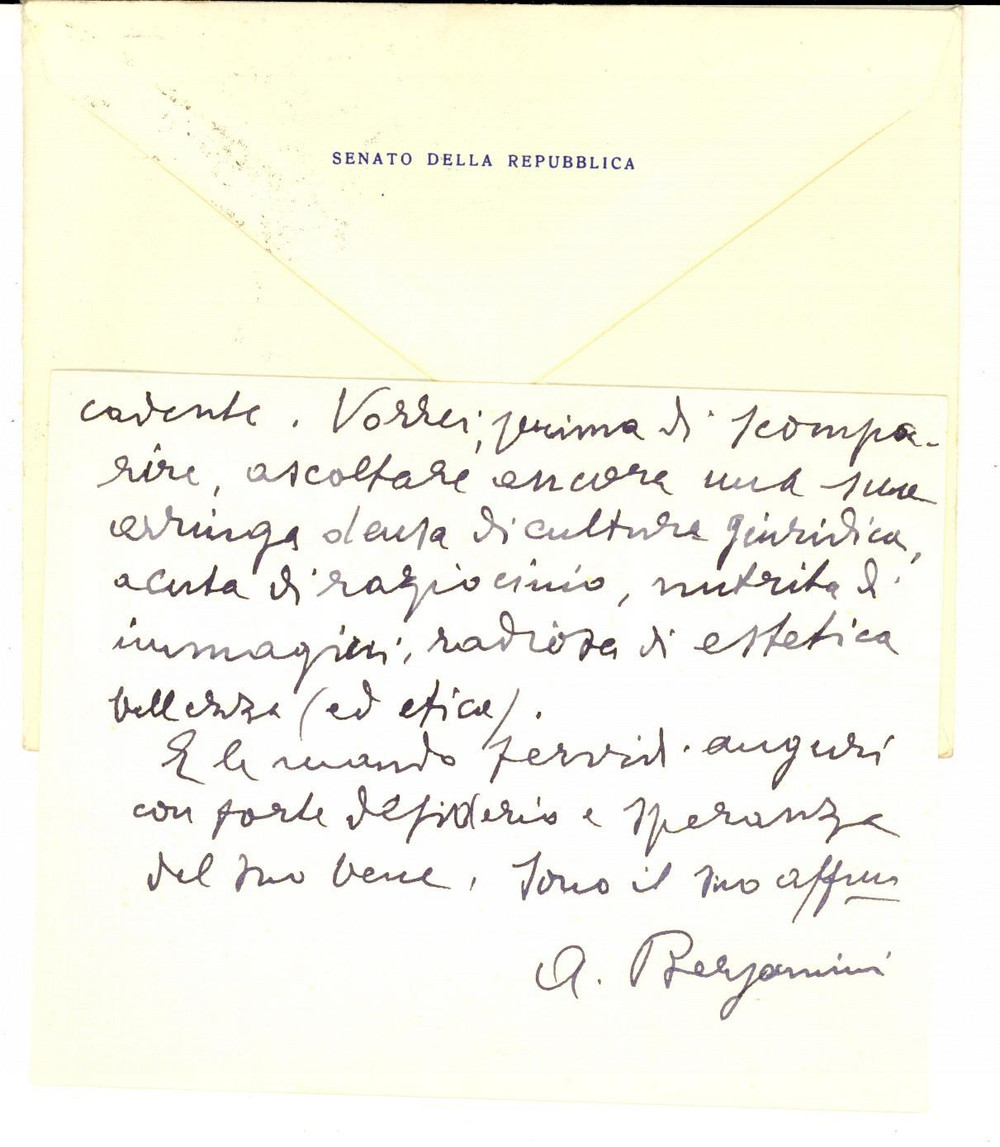 SENATO DELLA REPUBBLICA
cadente. Vorrei, prima di scompa-
rire, ascoltare ancora una sua
arringa densa di cultura giuridica,
acuta di raziocinio, nutrita di
immagini, radiosa di estetica
bellezza (ed etica).
E le mando fervidi auguri
con forte desiderio e speranza
del suo bene. Sono il suo affmo
A. Bergamini